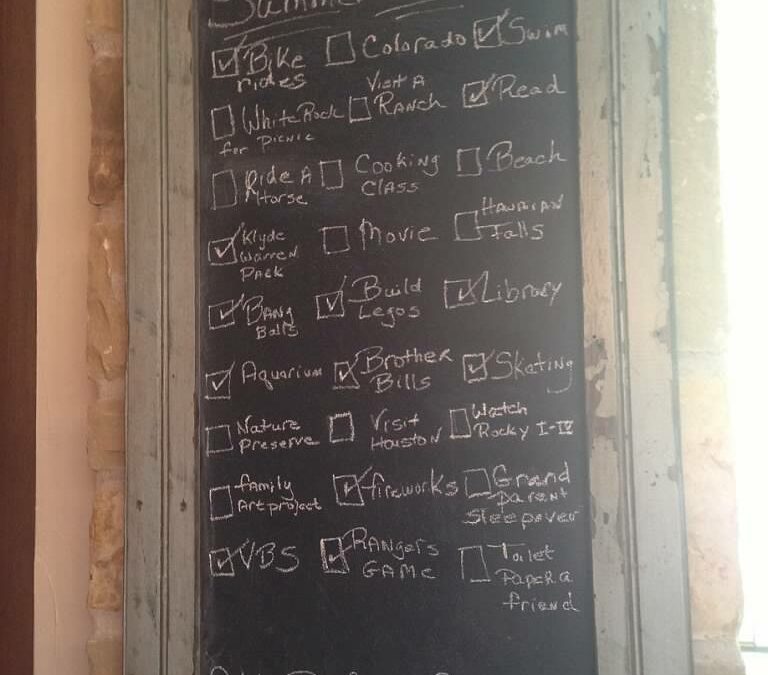 Summer
Bike
rides
Colorado
Swim
White Rock
for Picnic
Visit A
Ranch
Read
Ride A
Horse
Cooking
Class
Beach
Klyde
Warren
Park
Movie
Hawaiian
Falls
Bang
Balls
Build
Legos
Library
Aquarium
Brother
Bills
Skating
Nature
Preserve
Visit
Houston
Watch
Rocky I-IV
family
Art project
fireworks
Grand
parent
Sleepover
VBS
RANGERS
GAME
Toilet
Paper a
friend